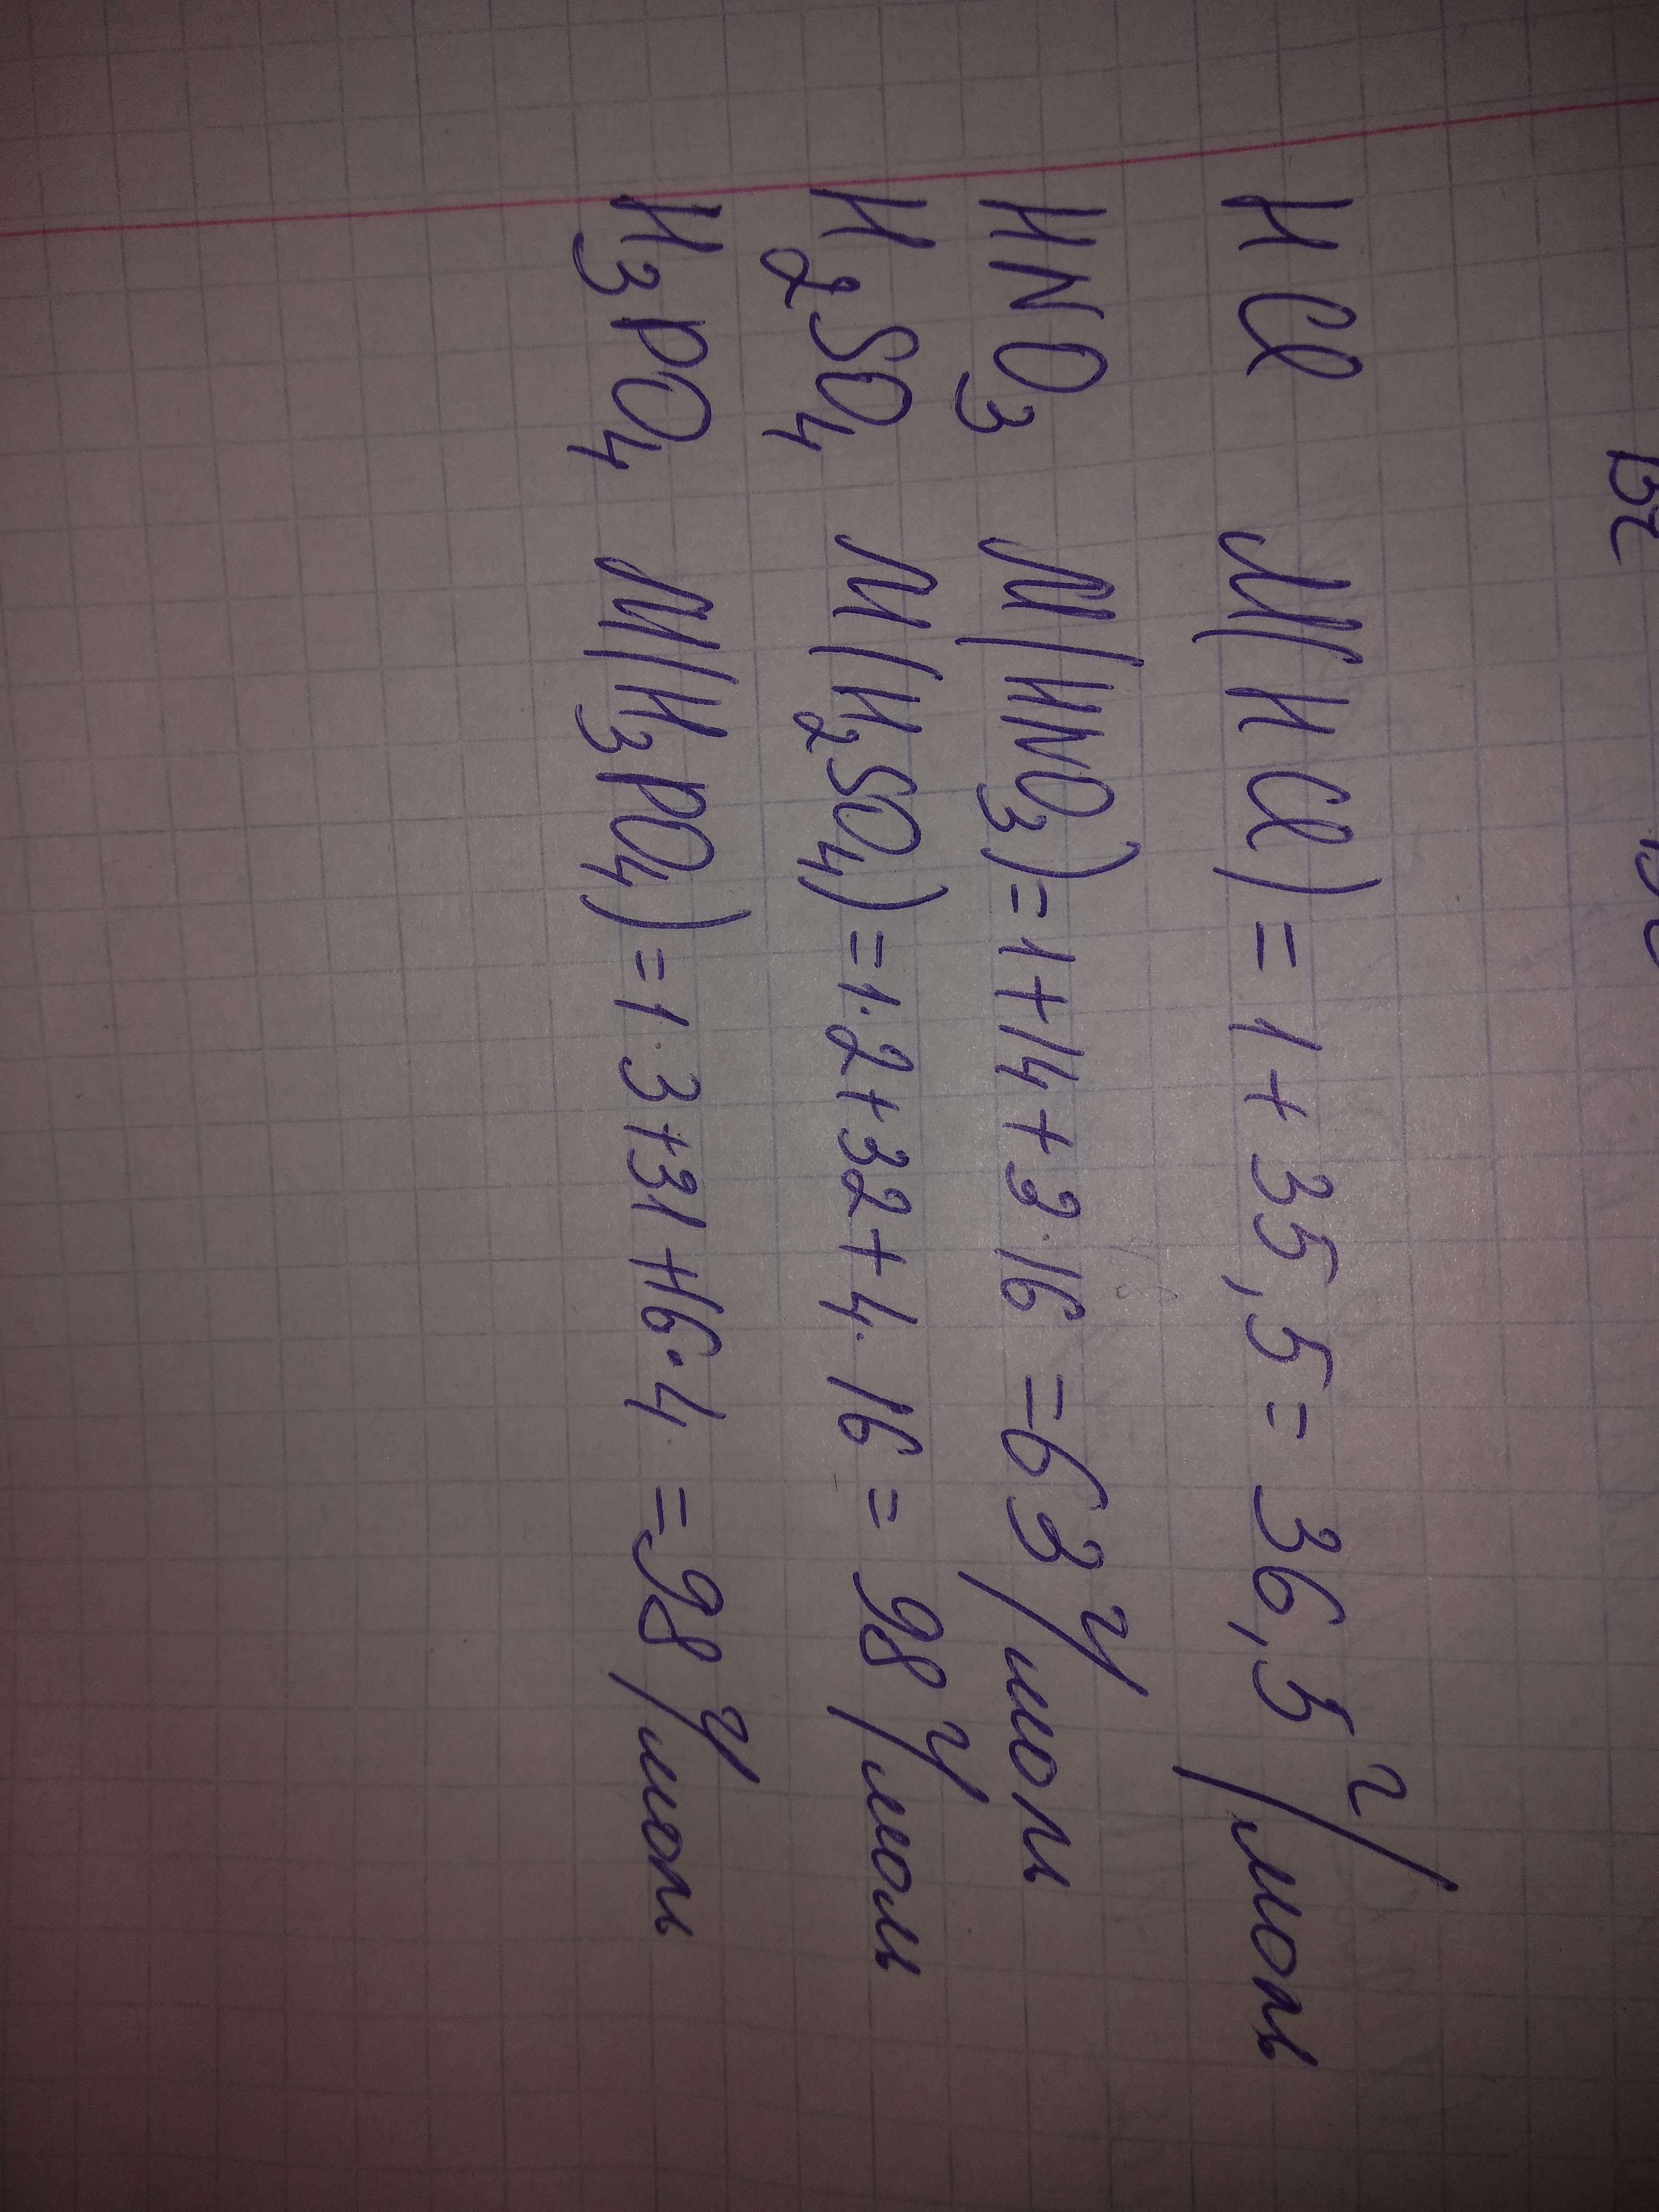 HCl M(HCl) = 1 + 35,5 = 36,5 г/моль
HNO₃ M(HNO₃) = 1 + 14 + 3·16 = 63 г/моль
H₂SO₄ M(H₂SO₄) = 1·2 + 32 + 4·16 = 98 г/моль
H₃PO₄ M(H₃PO₄) = 1·3 + 31 + 16·4 = 98 г/моль